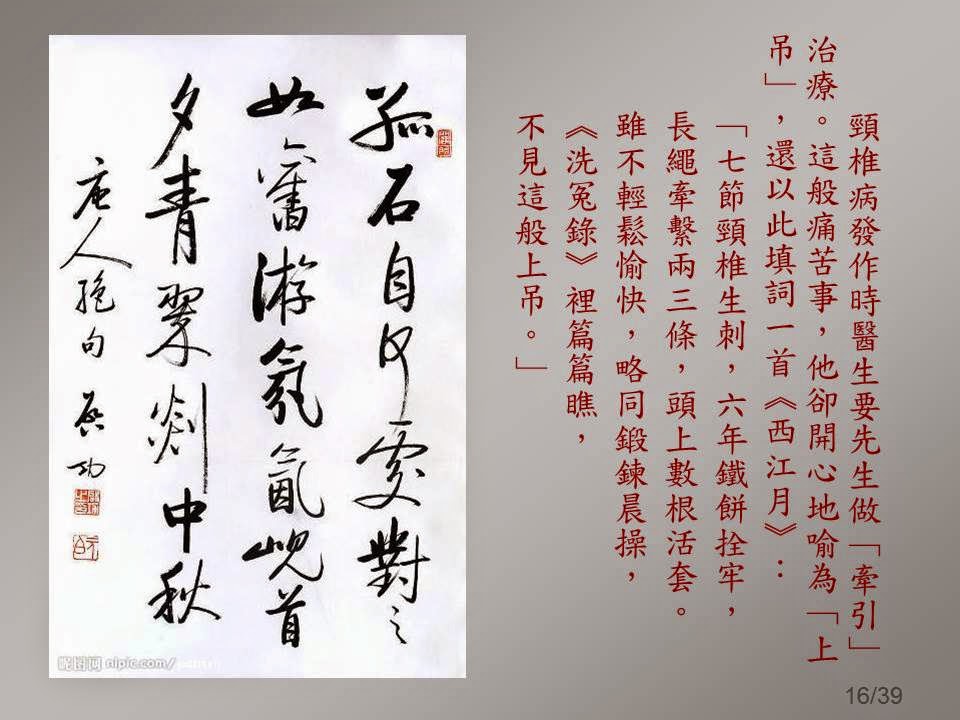 頸椎病發作時醫生要先生做「牽引」
治療。這般痛苦事，他卻開心地喻為「上
吊」，還以此填詞一首《西江月》：
「七節頸椎生刺，六年鐵餅拴牢，
長繩牽繫兩三條，頭上數根活套。
雖不輕鬆愉快，略同鍛鍊晨操，
《洗冤錄》裡篇篇瞧，
不見這般上吊。」
孤石自何處對之
如舊游氛氳峴首
夕青翠剡中秋
唐人絕句 启功
昵图网 nipic.com/
16/39